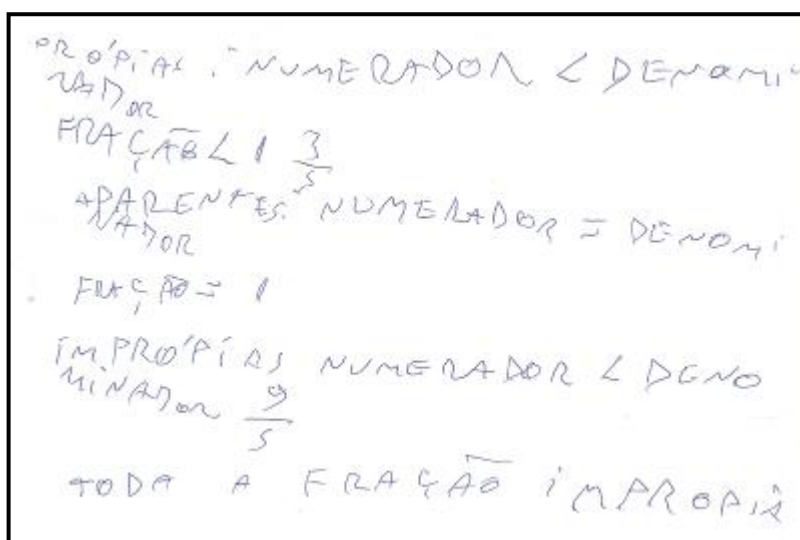 PRÓPIAS : NUMERADOR < DENOMI
NADOR
FRAÇÃO < 1 3/5
APARENTES: NUMERADOR = DENOMI
NADOR
FRAÇÃO = 1
IMPRÓPIAS NUMERADOR < DENO
MINADOR 9/5
TODA A FRAÇÃO IMPROPIA